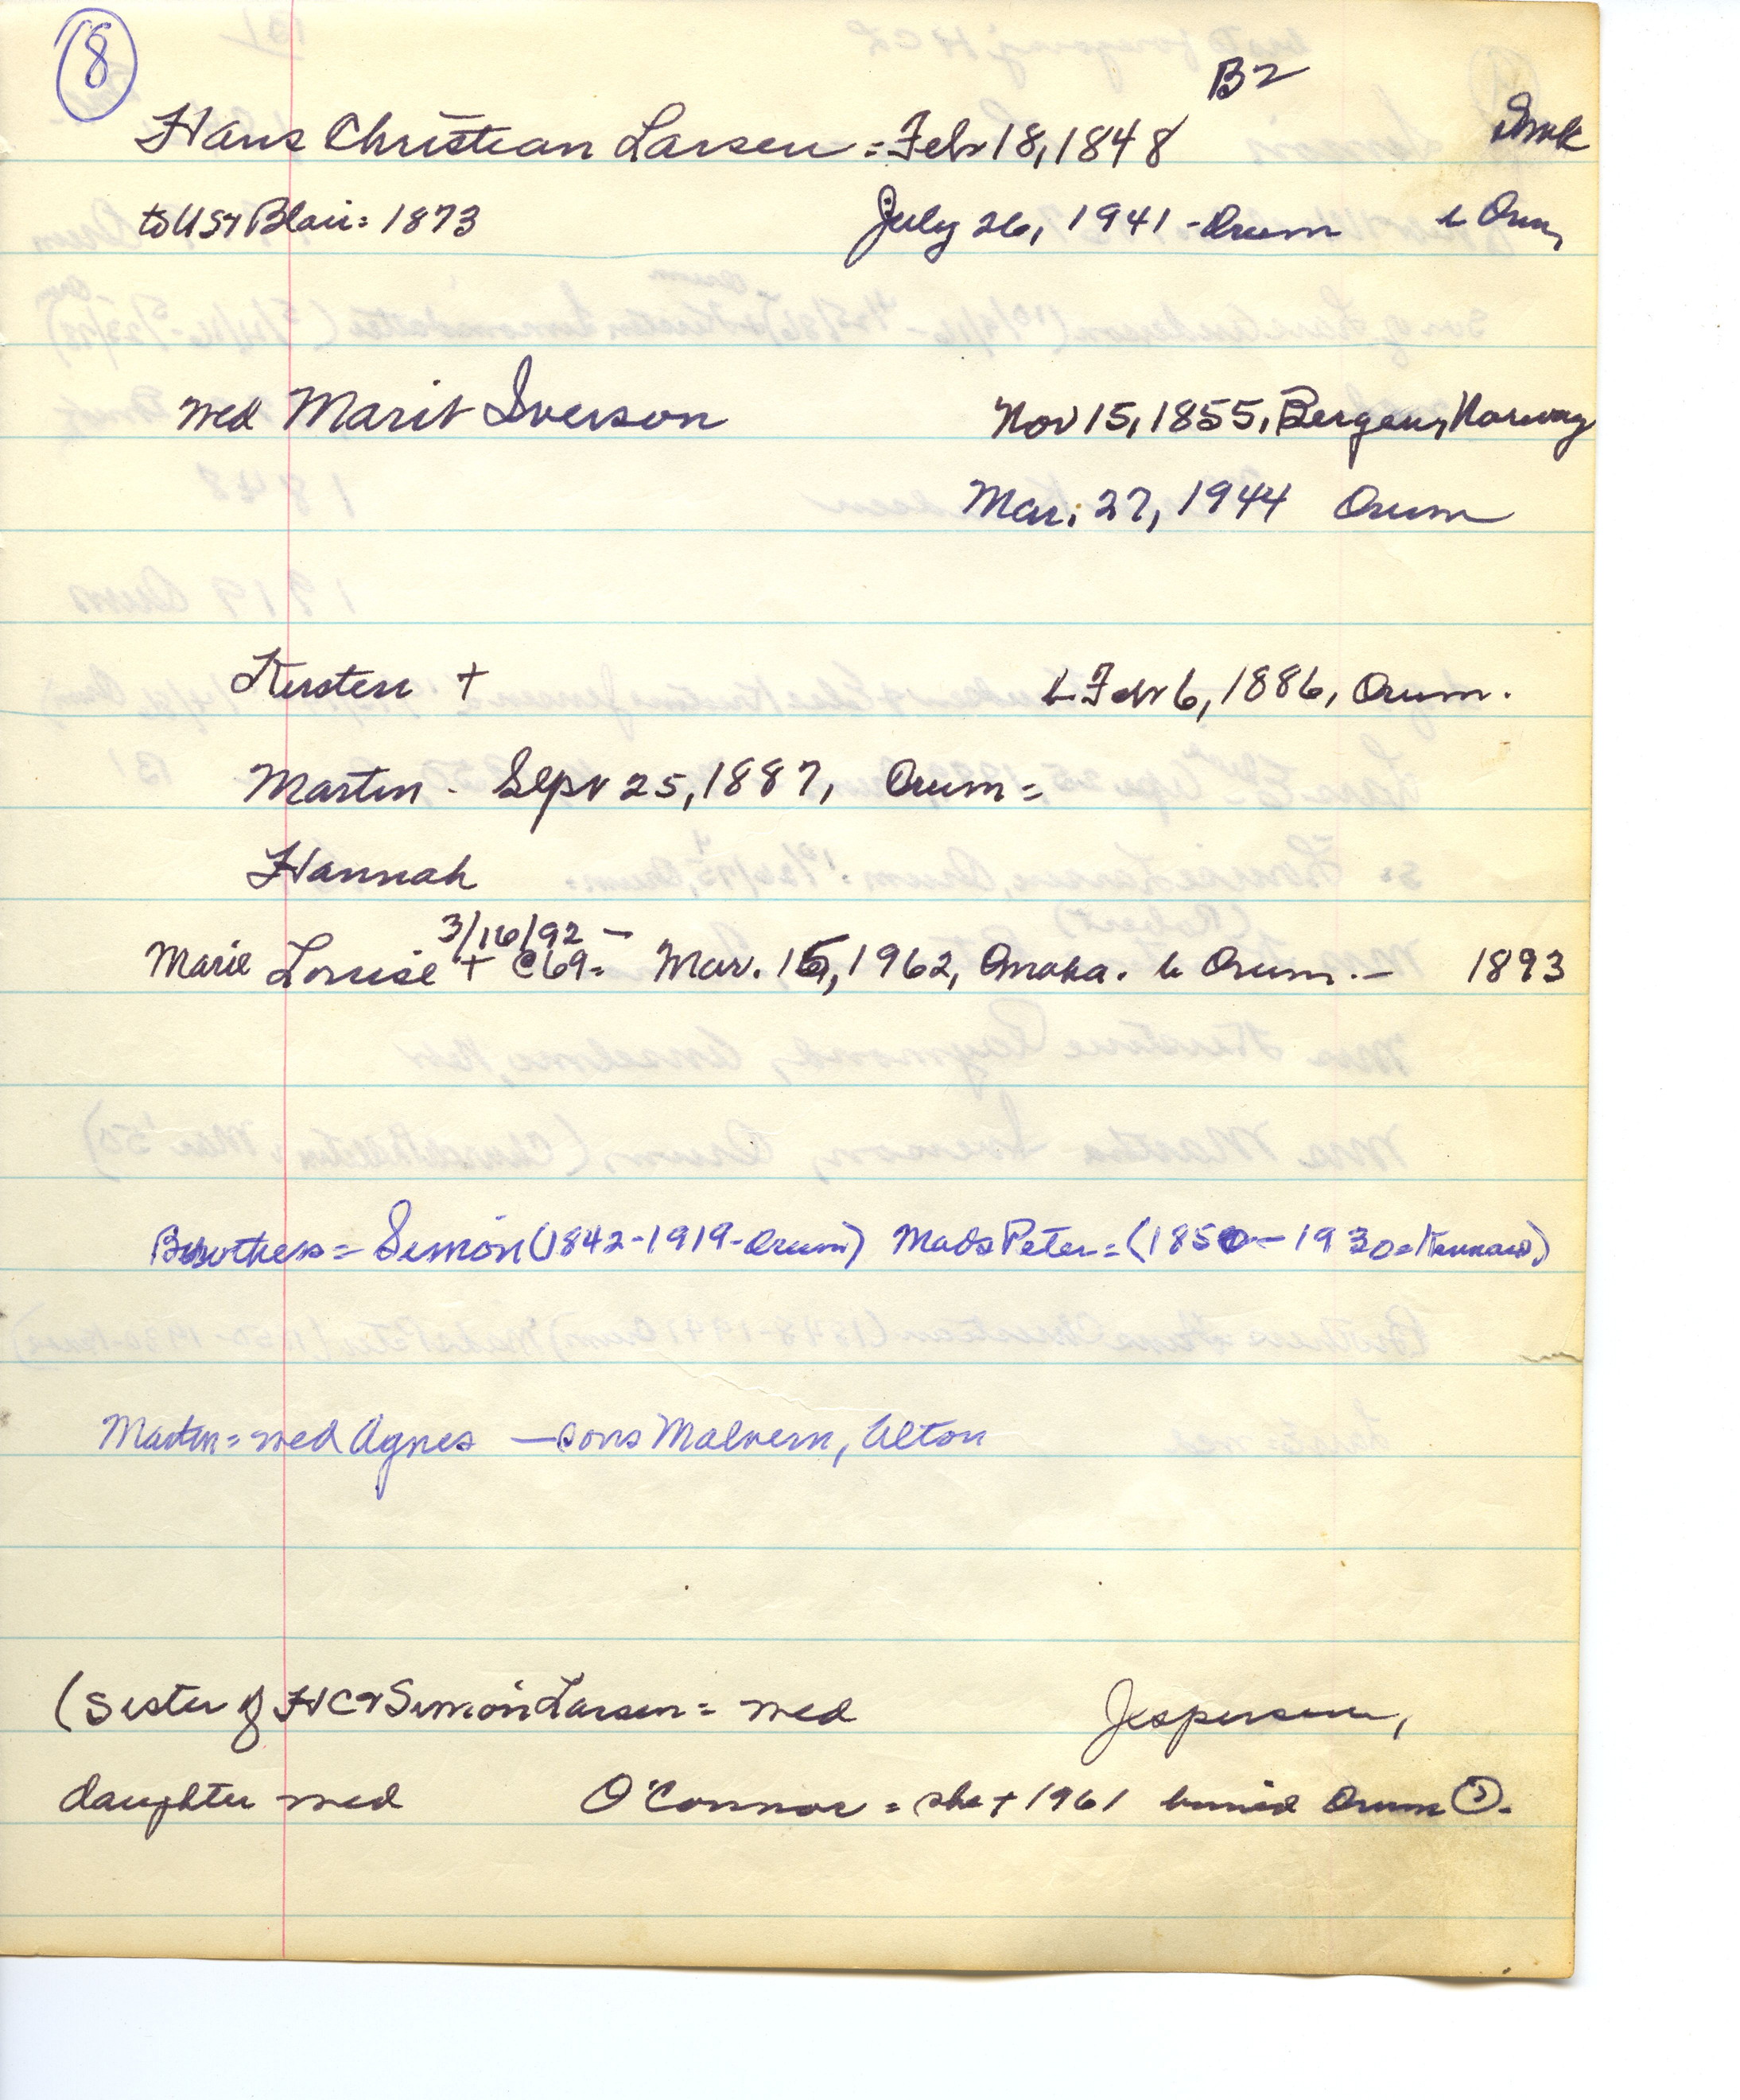 8
B2
Hans Christian Larsen = Feb 18, 1848 Dmk
to US & Blair = 1873 July 26, 1941 - Orum b Orum
wed Marit Iverson Nov 15, 1855, Bergen, Norway
Mar. 27, 1944 Orum
Kirsten + b Feb 6, 1886, Orum.
Martin - Sept 25, 1887, Orum =
Hannah
3/16/92 -
Marie Louise + @69 = Mar. 15, 1962, Omaha. b Orum. - 1893
Brothers = Simon (1842-1919-Orum) Mads Peter = (1850-1930=Kennard)
Martin = wed Agnes - sons Malvern, Alton
(Sister of HC & Simon Larsen = wed Jespersen,
daughter wed O'Connor = she + 1961 buried Orum ?.